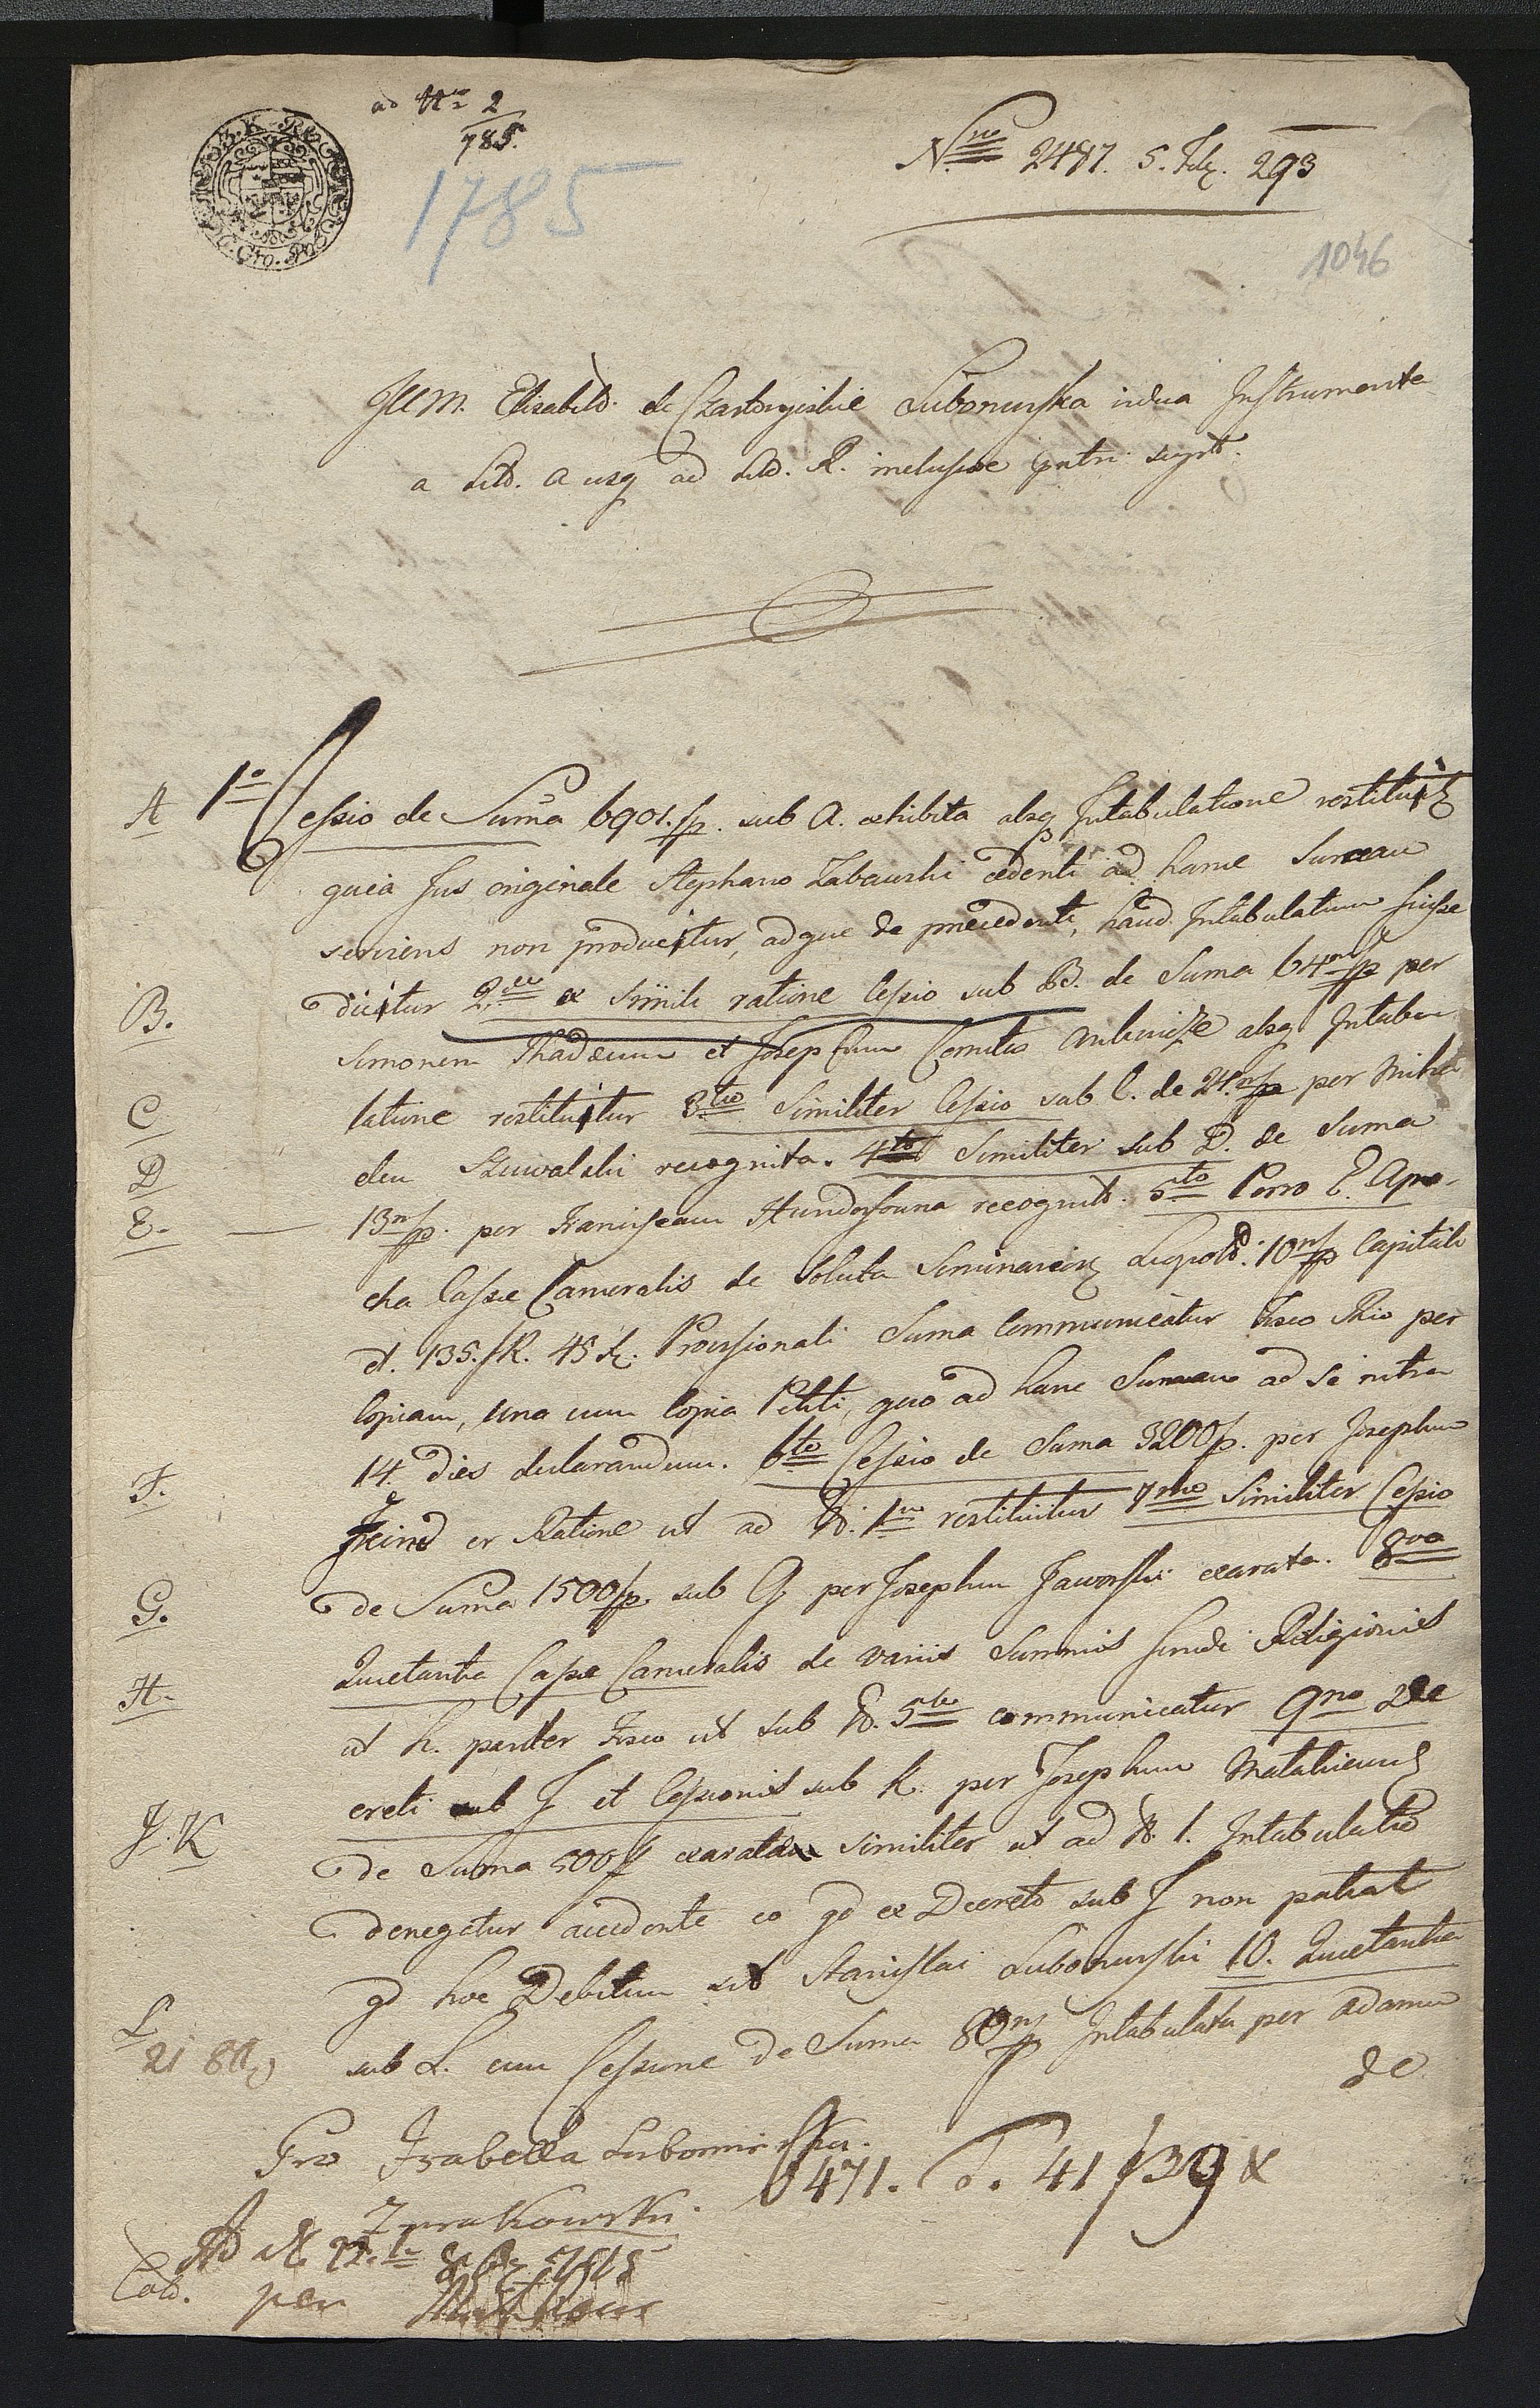 ad Nro 2
785.
1785
Nro 2487. S. Fdz. 293
1046
Ill M. Elisabeth. de Czartoryskie Lubomirska vidua Instrumenta
a Litt. A usq ad Litt. R. inclusive
A 1o Cessio de Suma 6901. fp. sub A. exhibita absq Intabulatione restituitr
quia Jus originale Stephano Zabawski cedenti ad hanc Sumam
serviens non producitur, adque de praecedenti, haud Intabulatum fuisse
B. dicitur 2do ex simili ratione Cessio sub B. de Suma 64m fp per
Simonem Thadeum et Josephum Comites absq Intabu
C latione restituitur 3tio Similiter Cessio sub C. de 24m fp per Micha
D elem recognita. 4to Similiter sub D. de Suma
E. 13m fp. per Franciscam recognit. 5to Porro E. Apo-
cha Cassae Cameralis de soluta Leopold. 10m fp Capitali
et. 135. fR. 45 x. Provisionali Suma Communicatur Fisco Rio per
Copiam, una cum Copia Petiti, quo ad hanc Sumam ad se intra
14. dies declarandum. 6to Cessio de Suma 3200 fp. per Josephum
F. ex Ratione ut ad N. 1um restituitur 7mo Similiter Cessio
G. de Suma 1500 fp. sub G per Josephum Jaworski exarata. 8vo
H. Quietantia Cassae Cameralis de variis Summis fundi Religionis
ut H. pariter Fisco ut sub N. 5to communicatur 9no De
J. K creti sub J et Cessionis sub K. per Josephum
de Suma 500 f exaratae similiter ut ad N. 1. Intabulatio
denegatur accedente eo qd ex Decreto sub J non pateat
qd hoc Debitum sit Stanislai Lubomirski 10. Quietantia
L sub L. cum Cessione de Suma 80m fp Intabulata per Adamum
de
Pro Isabella Lubomirska.
6471. T. 41 / 39 x
per